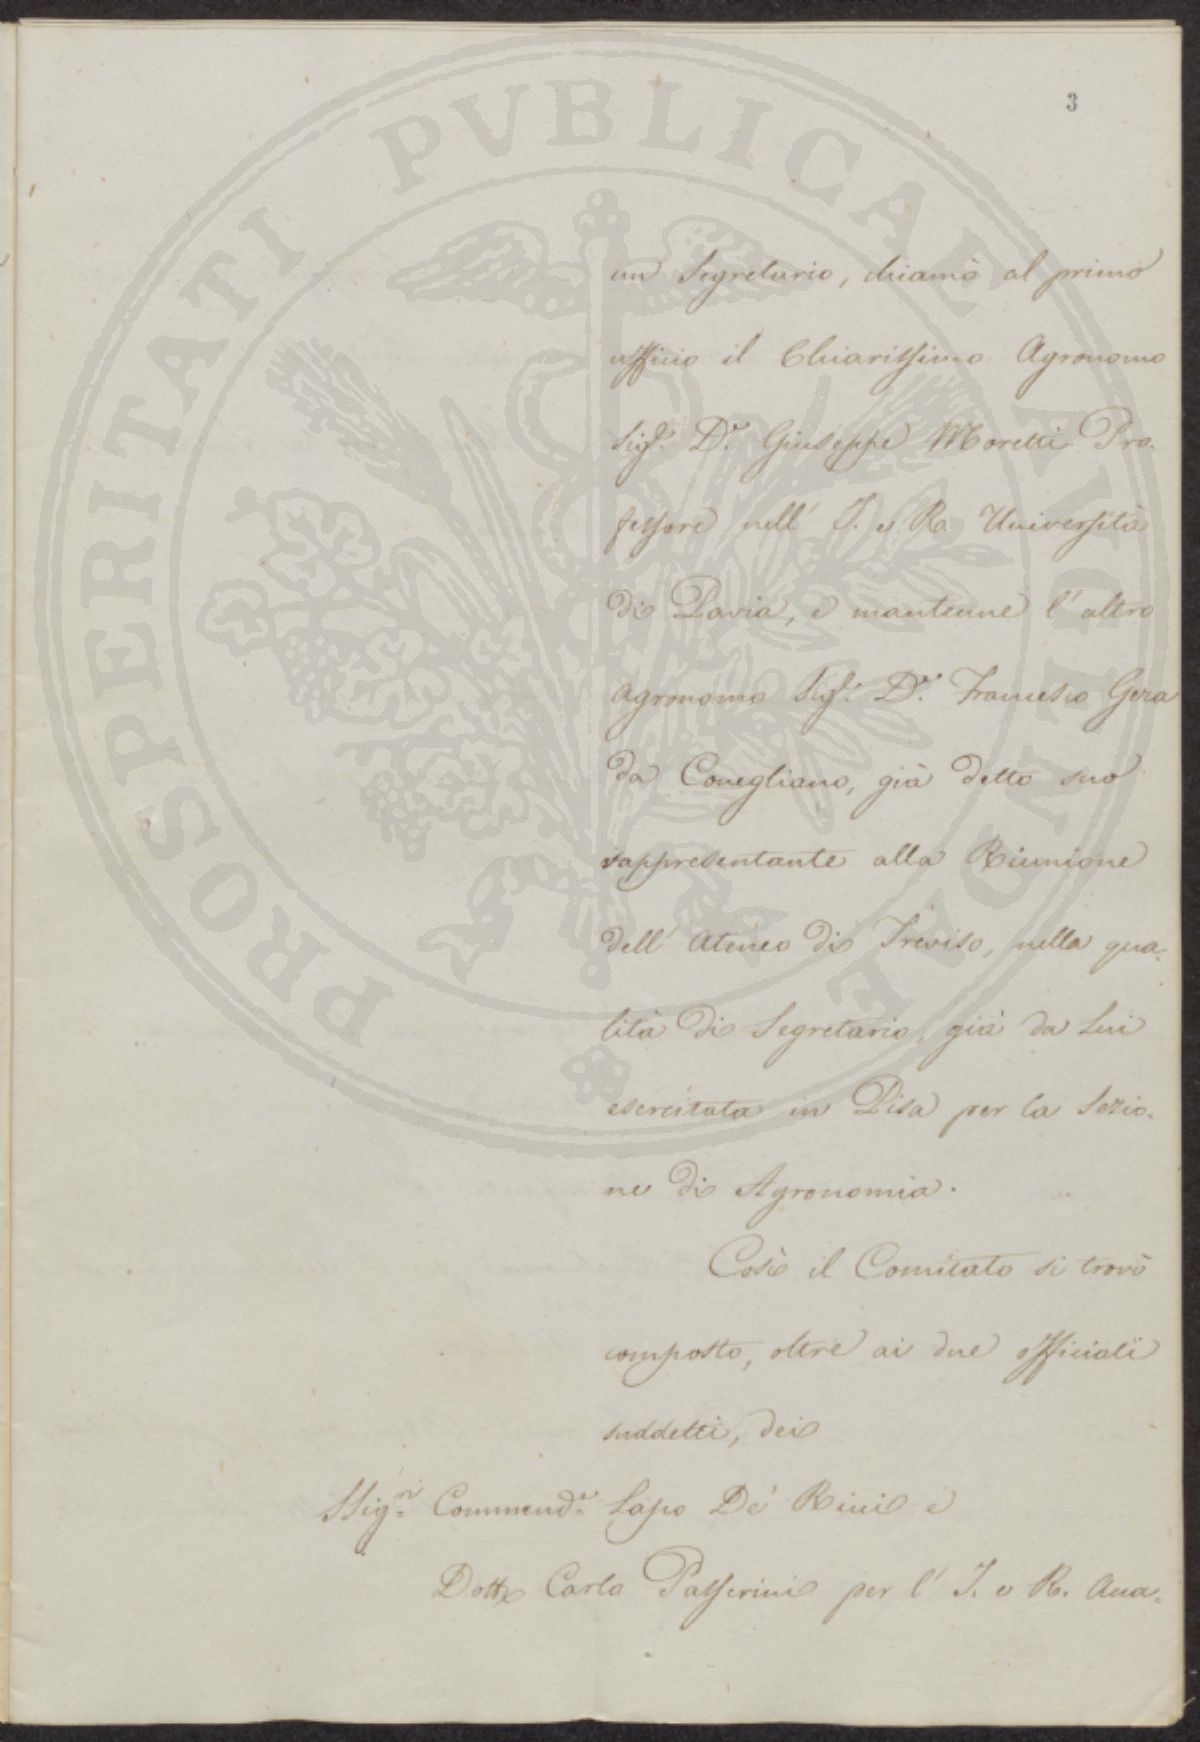 3
PROSPERITATI PVBLICAE AVGENDAE
un Segretario, chiamò al primo
ufficio il Chiarissimo Agronomo
Sig.r D.r Giuseppe Moretti Pro-
fessore nell' I. e R. Università
di Pavia, e mantenne l' altro
Agronomo Sig.r D.r Francesco Gera
da Conegliano, già detto suo
rappresentante alla Riunione
dell' Ateneo di Treviso, nella qua-
lità di Segretario, già da Lui
esercitata in Pisa per la Sezio-
ne di Agronomia.
Così il Comitato si trovò
composto, oltre ai due officiali
suddetti, dei
SSig.ri Commend.e Lapo De' Ricci e
Dott. Carlo Passerini per l' I. e R. Acca-